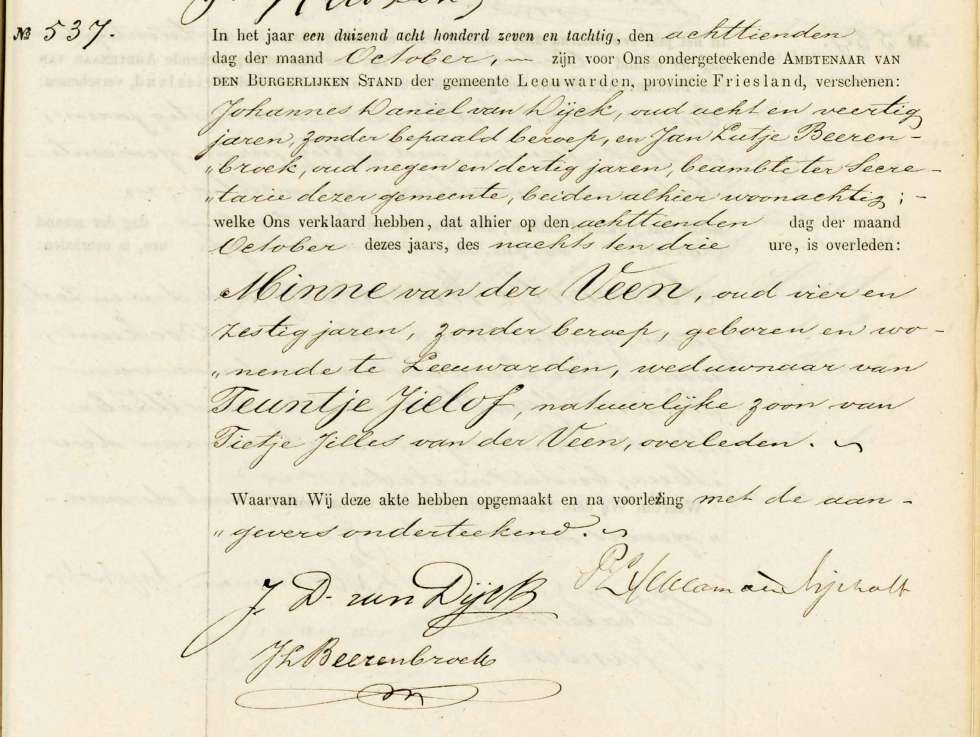 № 537.
In het jaar een duizend acht honderd zeven en tachtig, den achttienden
dag der maand October, — zijn voor Ons ondergeteekende AMBTENAAR VAN
DEN BURGERLIJKEN STAND der gemeente Leeuwarden, provincie Friesland, verschenen:
Johannes Daniel van Dÿck, oud acht en veertig
jaren, zonder bepaald beroep, en Jan Lutje Beeren-
„broek, oud negen en dertig jaren, beambte ter Secre-
„tarie dezer gemeente, beiden alhier woonachtig; -
welke Ons verklaard hebben, dat alhier op den achttienden dag der maand
October dezes jaars, des nachts ten drie ure, is overleden:
Minne van der Veen, oud vier en
zestig jaren, zonder beroep, geboren en wo-
„nende te Leeuwarden, weduwnaar van
Teuntje Jielof, natuurlijke zoon van
Tietje Jelles van der Veen, overleden.
Waarvan Wij deze akte hebben opgemaakt en na voorlezing met de aan-
„gevers onderteekend.
J. D. van Dÿck
JL Beerenbroek